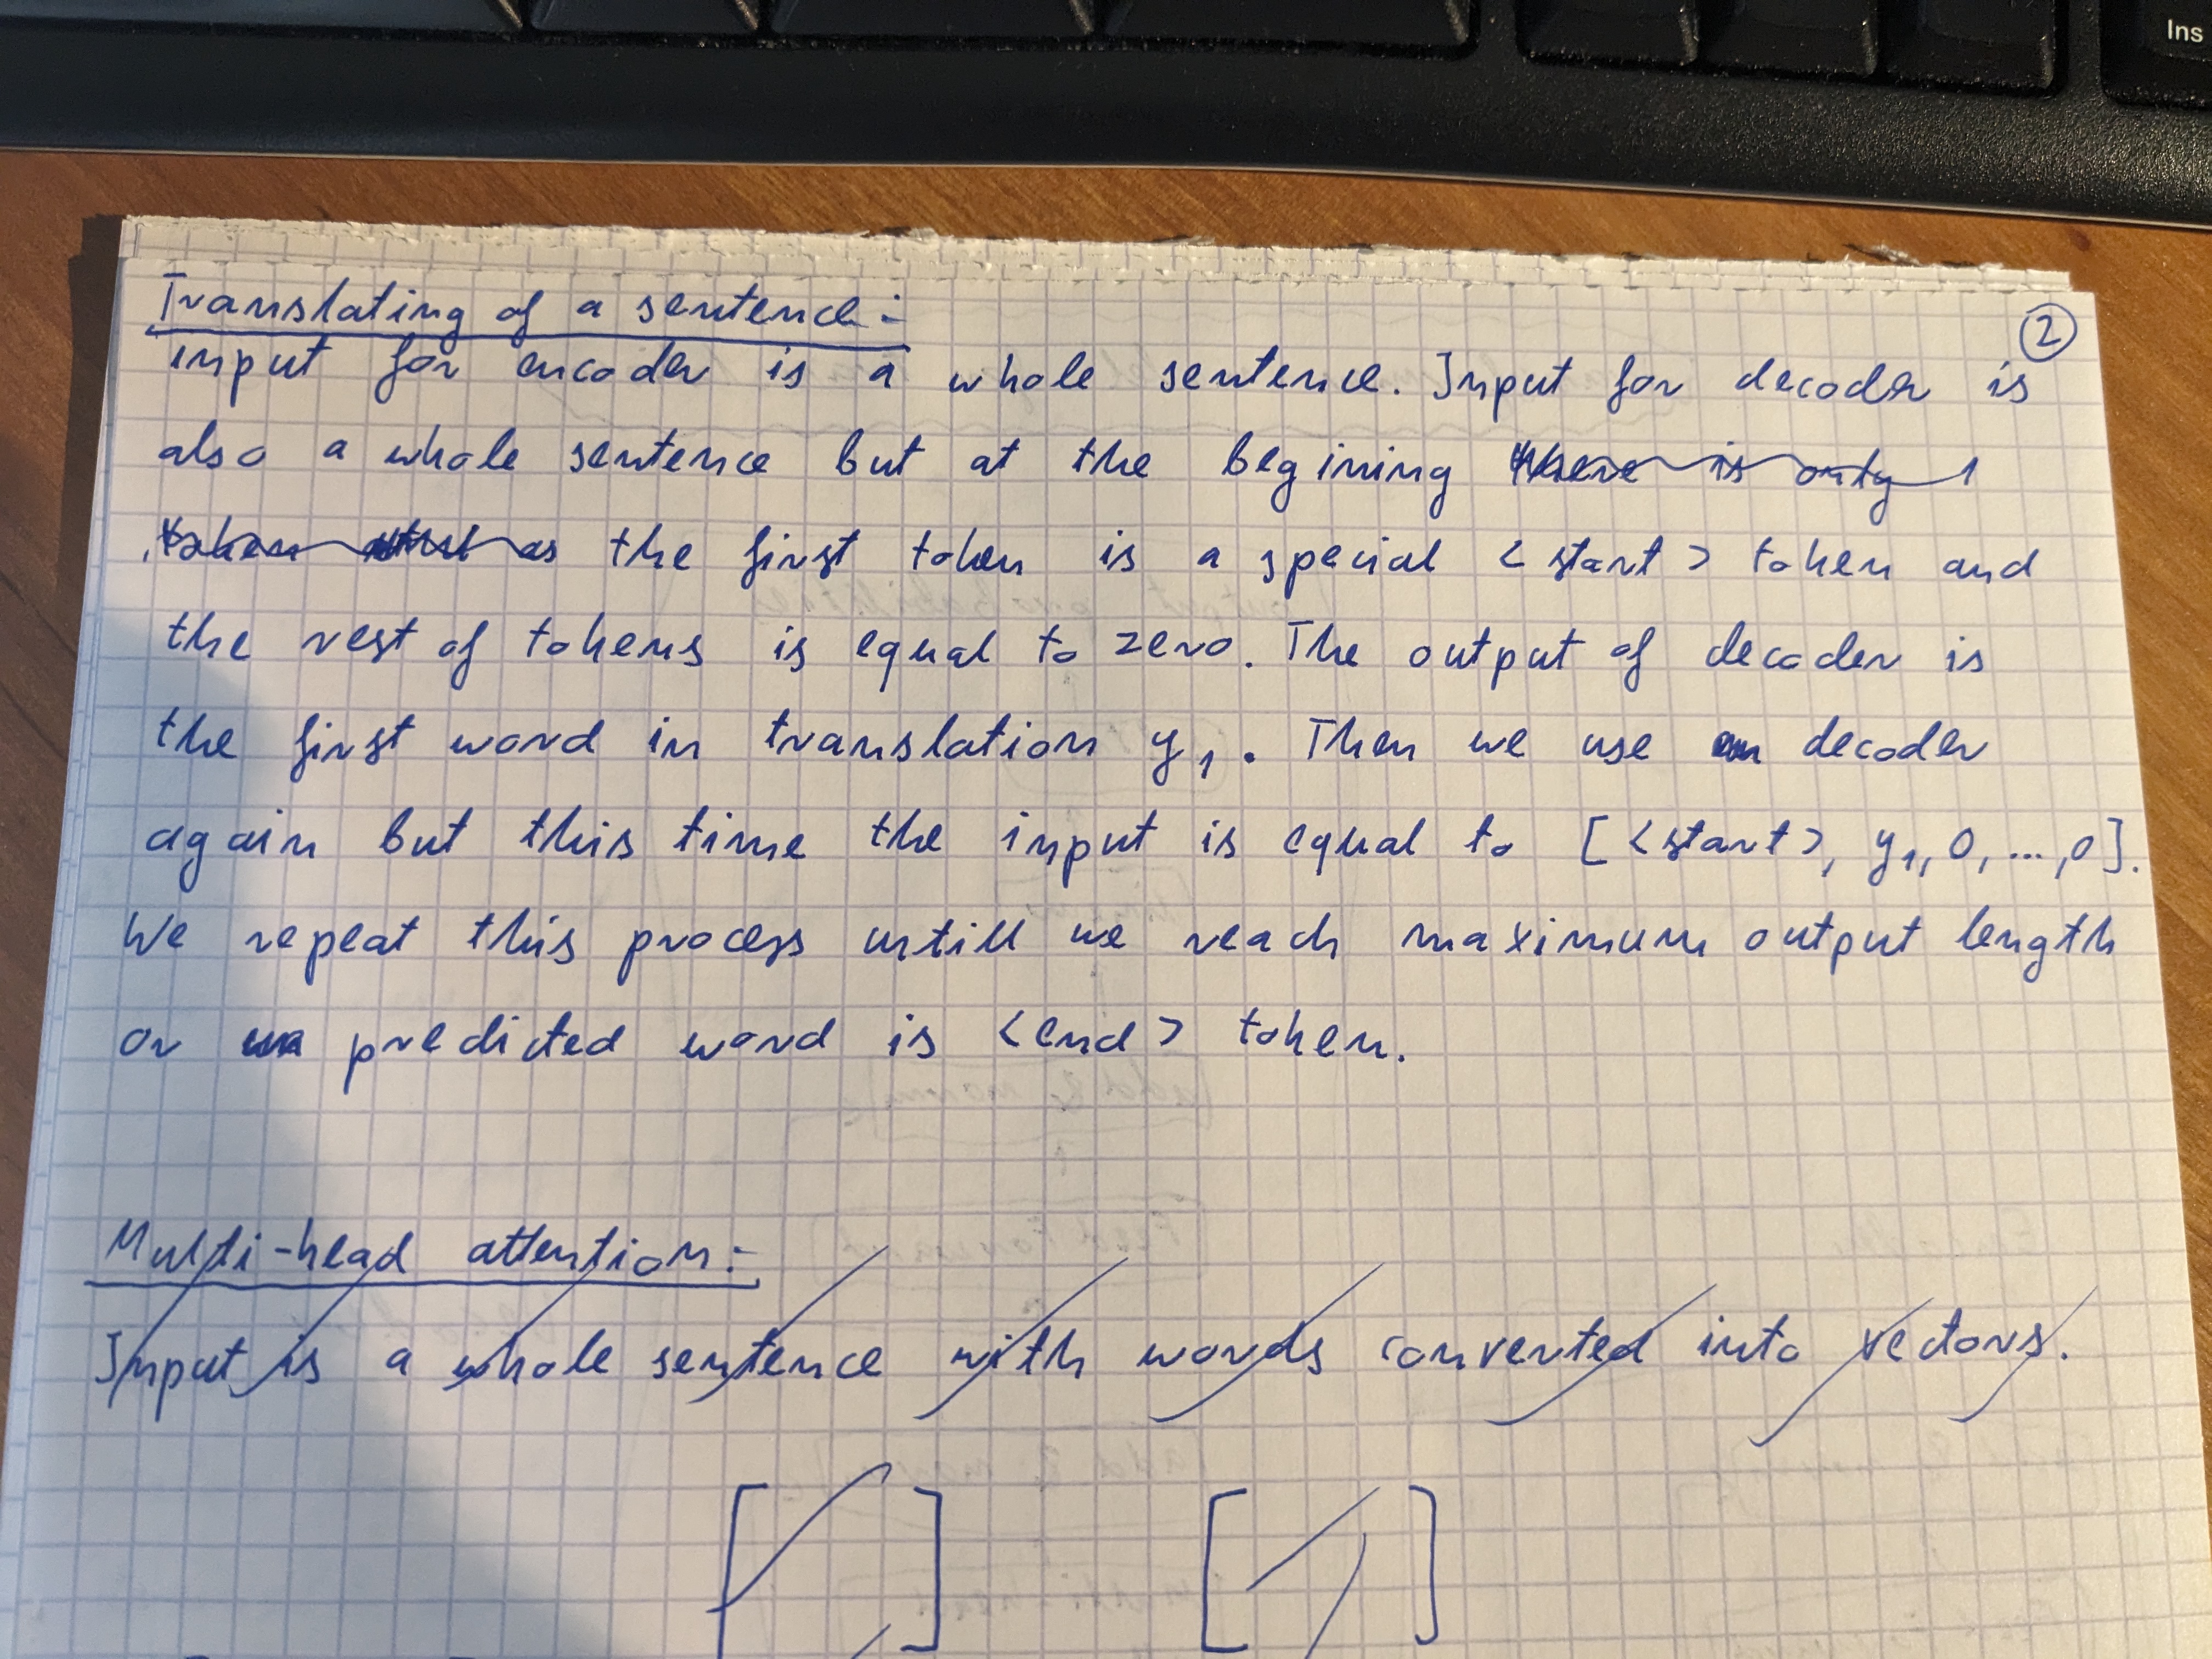 Ins
Translating of a sentence:
2
input for encoder is a whole sentence. Input for decoder is
also a whole sentence but at the begining there is only 1
token as the first token is a special <start> token and
the rest of tokens is equal to zero. The output of decoder is
the first word in translation y1. Then we use decoder
again but this time the input is equal to [<start>, y1, 0, ..., 0].
We repeat this process untill we reach maximum output length
or predicted word is <end> token.
Multi-head attention:
Input is a whole sentence with words converted into vectors.